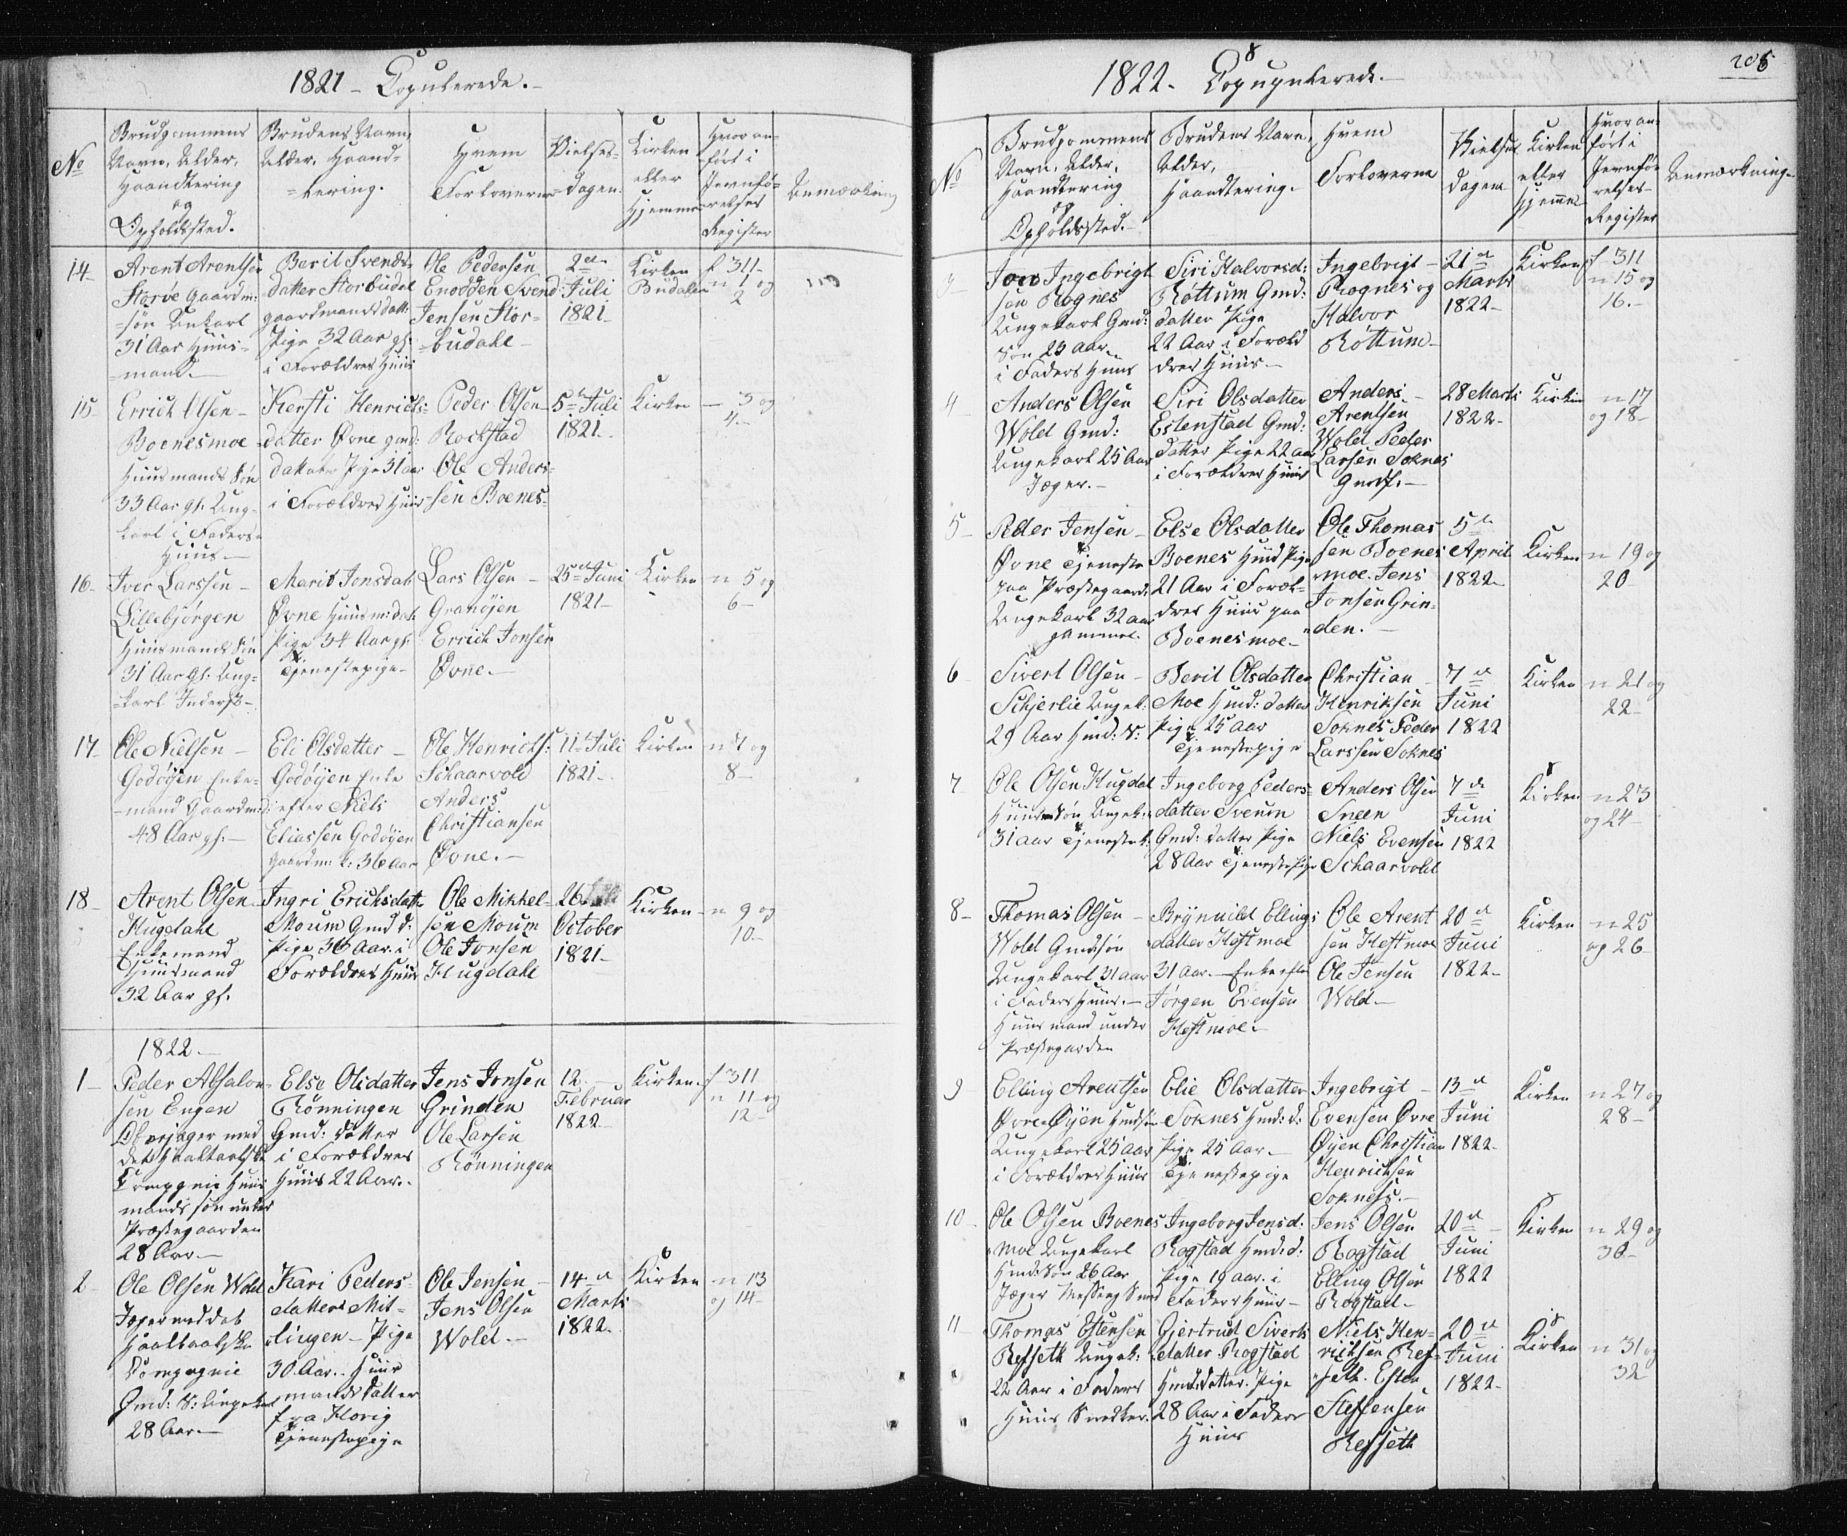 1821 - Copulerede.-
No
Brudgommens
Navn, Alder,
Haandtering
og
Opholdssted.
Brudens Navn,
Alder, Haand-
tering.
Hvem
Forloverne
Vielses-
dagen
Kirken
eller
Hjemme
Hvor an-
ført i
Jevnfø-
relses
Register
Anmærkning
14-
Arent Arentsen
Storøe Gaardm:
søn Unkarl
31 Aar Huus-
mand.-
Berit Svends-
datter Storbudal
gaardmandsdatt:
Pige 32 Aar gl.
i Forældres Huus
Ole Pedersen
Enodden Svend
Jensen Stor-
budahl-
2den
Juli
1821-
Kirken
Budalen
f 311-
n 1 og
2
15-
Errich Olsen-
Boenesmoe
Huusmands Søn
33 Aar gl. Ung-
karl i Faders-
Huus-
Kersti Henrichs-
datter Øvne gmd:
datter Pige 31 aar
i Forældres Huus
Peder Olsen
Rockstad
Ole Anders-
sen Boenes-
5te Juli
1821-
Kirken
- 3 og
4-
16-
Iver Larssen-
Lillebjørgen
Huusmands Søn
31 Aar gl. Ung-
karl Inderst-
Marit Jonsdat
Øvne Huusm: dat
Pige 34 Aar gl.
Tjenestepige-
Lars Olsen-
Granøien
Errich Jonsen
Øvne.-
25de Juni
1821-
Kirken
n 5 og
6-
17-
Ole Nielsen-
Godøyen Enke-
mand Gaardmd:
48 Aar gl.-
Eli Olsdatter-
Godøyen Enke
efter Niels
Eliassen Godøyen
gaardm: k: 36 aar
Ole Henrichs:
Schaarvold
Anders
Christiansen
Øvne.-
11te Juli
1821-
Kirken
n 7 og
8-
18-
Arent Olsen
Hugdahl
Enkemand
Huusmand
32 Aar gl.
Ingri Erichsdatt
Moum Gmd d:
Pige 36 Aar. i
Forældres Huus
Ole Mikkel-
sen Moum
Ole Jonsen
Hugdahl
26
October
1821-
Kirken-
n 9 og
10-
1822-
1-
Peder Absalon-
sen Engen
Oberjæger med
det Haaltaalske
Compagnie Huus
mands søn under
Præstegaarden
28 Aar-
Else Olsdatter
Rønningen
Gmd: Datter
i Forældres
Huus 22 Aar.
Jens Jonsen
Grinden
Ole Larsen
Rønningen
12
Februar
1822-
Kirken
f 311
n 11 og
12
2-
Ole Olsen Wold
Jæger ved det
Haaltaalske
Compagnie
Gmd: S: Ungekarl
28 Aar-
Kari Peders-
datter Mit-
lingen- Pige
30 Aar. Huus
mandsdatter
fra Horig
Tjenestepige
Ole Jensen-
Jens Olsen
Wold-
14de
Marts
1822-
Kirken
n 13
og 14-
1822- Copupulerede.-
205
No
Brudgommens
Navn, Alder,
Haandtering
og
Opholdssted.-
Brudens Navn,
Alder,
Haandtering.
Hvem
Forloverne
Vielses
dagen
Kirken
eller
Hjemme
Hvor an-
ført i
Jevnfø-
relses-
Register
Anmærkning
3-
Jon Ingebrigt
sen Rognes
Ungekarl Gmd:
søn 23 aar
i Faders Huus
Siri Halvorsd:
Røttum Gmd:
datter Pige
22 Aar i Foræld
dres Huus-
Ingebrigt-
Rognes og
Halvor
Røttum-
21de
Marts
1822-
Kirken
f 311
n 15 og
16.-
4
Anders Olsen
Wold Gmd:
Ungekarl 25 Aar
Jæger.-
Siri Olsdatter
Estenstad Gmd:
datter Pige 22 aar
i Forældres Huus
Anders-
Arentsen
Wold Peder
Larsen Soknes
Gmdf.-
28 Marts
1822-
Kirken
n 17
og 18-
5-
Peder Jensen-
Øvne Tjeneste
paa Præstegaard:
Ungekarl 32 aar
gammel.
Else Olsdatter
Boenes Hmd Pige
21 Aar i Foræl-
dres Huus paa
Boenesmoe-
Ole Thomas
sen Boenes
moe. Jens
Jonsen Grin-
den.-
5te
April
1822-
Kirken
n 19 og
20
6
Sivert Olsen-
Schjerlie Ungek:
29 Aar Hmd: S:
Berit Olsdatter
Moe Hmd: datter
Pige 25 Aar
Tjenestepige
Christian-
Henriksen
Soknes Peder
Larssen Soknes
7de
Juni
1822
Kirken
n 21 og
22-
7
Ole Olsen Hugdal
Huusm Søn Ungek:
31 aar Tjenestek:
Ingeborg Peders-
datter Sveum
Gmd: datter Pige
28 Aar Tjenestepige
Anders Olsen
Sneen
Niels Evensen
Schaarvold
7de
Juni
1822
Kirken
n 23
og 24-
8-
Thomas Olsen-
Wold Gmdsøn
Ungekarl 31 aar
i Faders Huus.-
Huusmand under
Præstegarden
Brynnild Ellings
datter Hestmoe
31 Aar.- Enke efter
Jørgen Evensen
Hestmoe-
Ole Arent
sen Hestmoe
Ole Jensen
Wold-
20de
Juni
1822-
Kirken
n 25
og 26-
9
Elling Arentsen
Øvre Øyen Hmdsøn
Ungekarl 25 aar
i Forældres Huus
Elie Olsdatter
Soknes Hmd: d:
Pige 25 Aar.-
Tjenestepige
Ingebrigt-
Evensen Øvre
Øyen Christian
Henrichsen
Soknes.-
13de
Juni
1822-
Kirken
n 27 og
28-
10-
Ole Olsen Boenes
moe Ungekarl
Hmds Søn 26 Aar
Jæger Messing Smed
Ingeborg Jensd.
Rogstad Hmd: d:
Pige 19 aar. i
Faders Huus-
Jens Olsen
Rogstad
Elling Olsen
Rogstad-
20de
Juni
1822
Kirken
n 29 og
30-
11
Thomas Estensen
Refseth Ungek:
22 Aar i Faders
Huus Snedker.
Gjertrud Siverts
datter Rogstad
Hmdsdatter. Pige
28 Aar i Faders
Huus
Niels Hen-
richsen Ref-
seth. Esten
Steffensen
Refseth
20de
Juni
1822-
Kirken
n 31 og
32